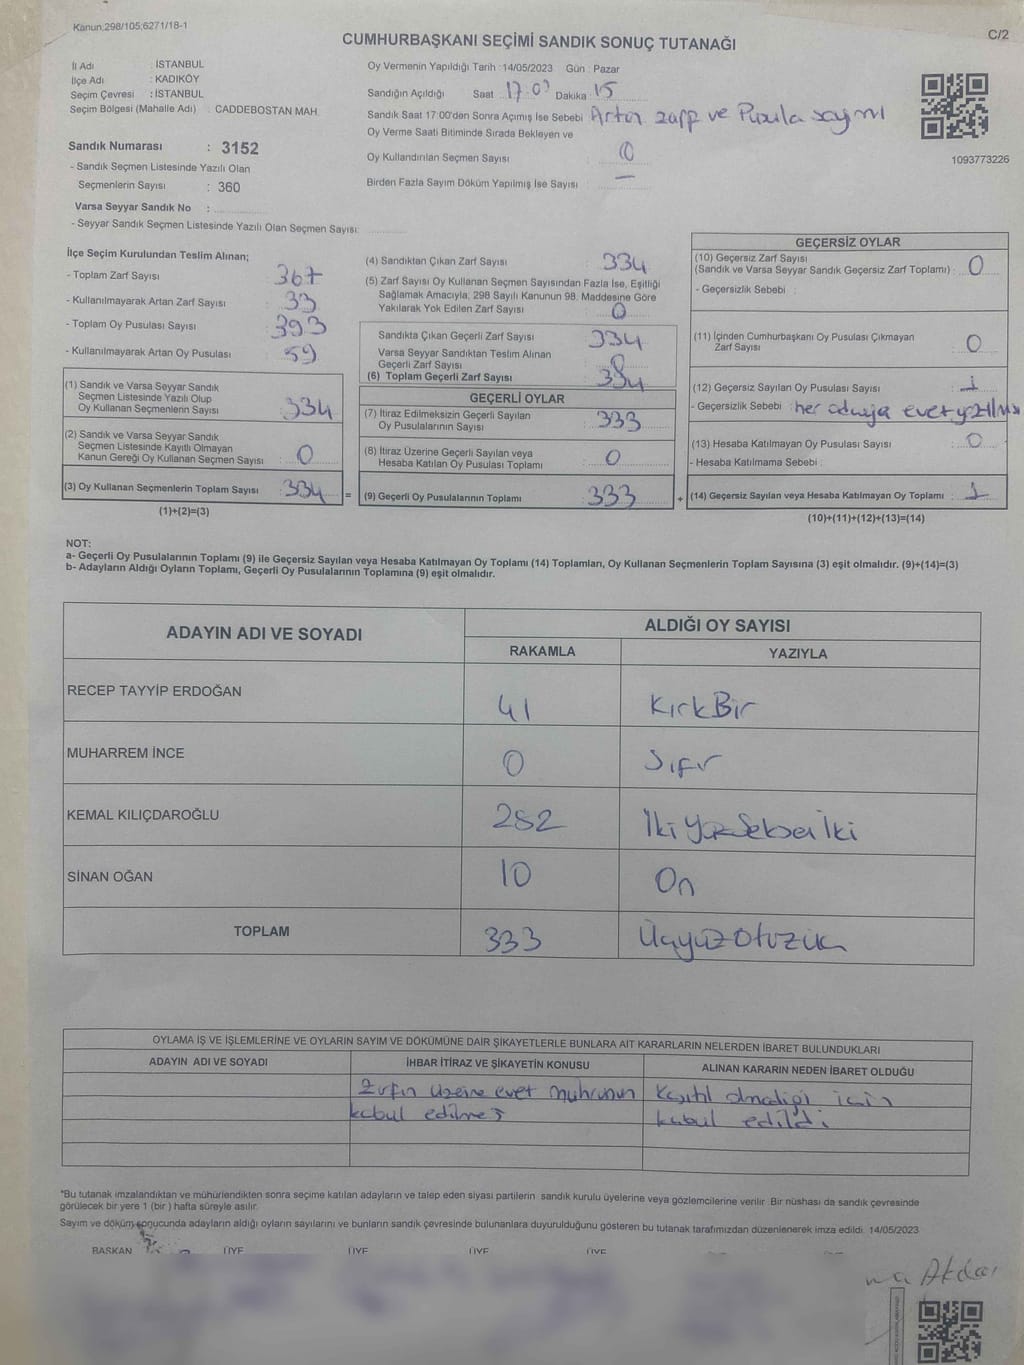 Kanun;298/105;6271/18-1
C/2
CUMHURBAŞKANI SEÇİMİ SANDIK SONUÇ TUTANAĞI
İl Adı : İSTANBUL
İlçe Adı : KADIKÖY
Seçim Çevresi : İSTANBUL
Seçim Bölgesi (Mahalle Adı) : CADDEBOSTAN MAH.
Sandık Numarası : 3152
- Sandık Seçmen Listesinde Yazılı Olan
Seçmenlerin Sayısı : 360
Varsa Seyyar Sandık No :
- Seyyar Sandık Seçmen Listesinde Yazılı Olan Seçmen Sayısı:
Oy Vermenin Yapıldığı Tarih :14/05/2023 Gün : Pazar
Sandığın Açıldığı Saat : 17:07 Dakika 15
Sandık Saat 17:00'den Sonra Açımış İse Sebebi Artın zarf ve Pusula sayımı
Oy Verme Saati Bitiminde Sırada Bekleyen ve
Oy Kullandırılan Seçmen Sayısı : 0
Birden Fazla Sayım Döküm Yapılmış İse Sayısı : —
1093773226
İlçe Seçim Kurulundan Teslim Alınan;
- Toplam Zarf Sayısı : 367
- Kullanılmayarak Artan Zarf Sayısı : 33
- Toplam Oy Pusulası Sayısı : 393
- Kullanılmayarak Artan Oy Pusulası : 59
(1) Sandık ve Varsa Seyyar Sandık
Seçmen Listesinde Yazılı Olup
Oy Kullanan Seçmenlerin Sayısı : 334
(2) Sandık ve Varsa Seyyar Sandık
Seçmen Listesinde Kayıtlı Olmayan
Kanun Gereği Oy Kullanan Seçmen Sayısı : 0
(3) Oy Kullanan Seçmenlerin Toplam Sayısı : 334 =
(1)+(2)=(3)
(4) Sandıktan Çıkan Zarf Sayısı : 334
(5) Zarf Sayısı Oy Kullanan Seçmen Sayısından Fazla İse, Eşitliği
Sağlamak Amacıyla, 298 Sayılı Kanunun 98. Maddesine Göre
Yakılarak Yok Edilen Zarf Sayısı : 0
Sandıkta Çıkan Geçerli Zarf Sayısı : 334
Varsa Seyyar Sandıktan Teslim Alınan
Geçerli Zarf Sayısı :
(6) Toplam Geçerli Zarf Sayısı : 334
GEÇERLİ OYLAR
(7) İtiraz Edilmeksizin Geçerli Sayılan
Oy Pusulalarının Sayısı : 333
(8) İtiraz Üzerine Geçerli Sayılan veya
Hesaba Katılan Oy Pusulası Toplamı : 0
(9) Geçerli Oy Pusulalarının Toplamı : 333 +
GEÇERSİZ OYLAR
(10) Geçersiz Zarf Sayısı
(Sandık ve Varsa Seyyar Sandık Geçersiz Zarf Toplamı) : 0
- Geçersizlik Sebebi :
(11) İçinden Cumhurbaşkanı Oy Pusulası Çıkmayan
Zarf Sayısı : 0
(12) Geçersiz Sayılan Oy Pusulası Sayısı : 1
- Geçersizlik Sebebi : her adaya evet yazılmış
(13) Hesaba Katılmayan Oy Pusulası Sayısı : 0
- Hesaba Katılmama Sebebi :
(14) Geçersiz Sayılan veya Hesaba Katılmayan Oy Toplamı : 1
(10)+(11)+(12)+(13)=(14)
NOT:
a- Geçerli Oy Pusulalarının Toplamı (9) ile Geçersiz Sayılan veya Hesaba Katılmayan Oy Toplamı (14) Toplamları, Oy Kullanan Seçmenlerin Toplam Sayısına (3) eşit olmalıdır. (9)+(14)=(3)
b- Adayların Aldığı Oyların Toplamı, Geçerli Oy Pusulalarının Toplamına (9) eşit olmalıdır.
ADAYIN ADI VE SOYADI ALDIĞI OY SAYISI
RAKAMLA YAZIYLA
RECEP TAYYİP ERDOĞAN 41 KırkBir
MUHARREM İNCE 0 Sıfır
KEMAL KILIÇDAROĞLU 282 İkiYüzSeksenİki
SİNAN OĞAN 10 On
TOPLAM 333 ÜçyüzOtuzüç
OYLAMA İŞ VE İŞLEMLERİNE VE OYLARIN SAYIM VE DÖKÜMÜNE DAİR ŞİKAYETLERLE BUNLARA AİT KARARLARIN NELERDEN İBARET BULUNDUKLARI
ADAYIN ADI VE SOYADI İHBAR İTİRAZ VE ŞİKAYETİN KONUSU ALINAN KARARIN NEDEN İBARET OLDUĞU
Zarfın üzerine evet mührünün kasıtlı olmadığı için
kabul edilmesi kabul edildi
*Bu tutanak imzalandıktan ve mühürlendikten sonra seçime katılan adayların ve talep eden siyasi partilerin sandık kurulu üyelerine veya gözlemcilerine verilir. Bir nüshası da sandık çevresinde
görülecek bir yere 1 (bir ) hafta süreyle asılır.
Sayım ve döküm sonucunda adayların aldığı oyların sayılarını ve bunların sandık çevresinde bulunanlara duyurulduğunu gösteren bu tutanak tarafımızdan düzenlenerek imza edildi. 14/05/2023
BAŞKAN ÜYE ÜYE ÜYE ÜYE